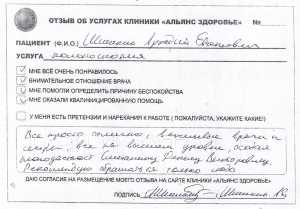 ОТЗЫВ ОБ УСЛУГАХ КЛИНИКИ «АЛЬЯНС ЗДОРОВЬЕ» №
ПАЦИЕНТ (Ф.И.О.)
УСЛУГА колоноскопия
МНЕ ВСЁ ОЧЕНЬ ПОНРАВИЛОСЬ
ВНИМАТЕЛЬНОЕ ОТНОШЕНИЕ ВРАЧА
МНЕ ПОМОГЛИ ОПРЕДЕЛИТЬ ПРИЧИНУ БЕСПОКОЙСТВА
МНЕ ОКАЗАЛИ КВАЛИФИЦИРОВАННУЮ ПОМОЩЬ
У МЕНЯ ЕСТЬ ПРЕТЕНЗИИ И НАРЕКАНИЯ К РАБОТЕ ( ПОЖАЛУЙСТА, УКАЖИТЕ КАКИЕ!)
Все просто отлично, вежливые врачи и
сестры; все на высшем уровне, особая
благодарность
Рекомендую обращаться только сюда
ДАЮ СОГЛАСИЕ НА РАЗМЕЩЕНИЕ МОЕГО ОТЗЫВА НА САЙТЕ КЛИНИКИ «АЛЬЯНС ЗДОРОВЬЕ»
ПОДПИСЬ